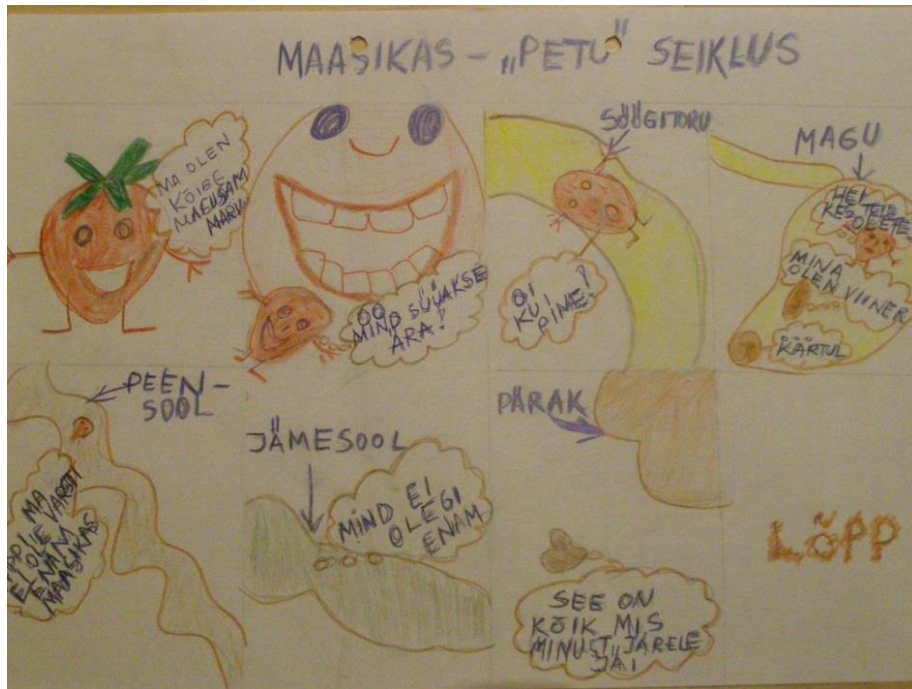 MAASIKAS – „PETU" SEIKLUS
MA OLEN
KÕIGE
MAGUSAM
MARI
ÖÖ
MIND SÜÜAKSE
ÄRA!
SÖÖGITORU
ÖI
KUI
PIME!
MAGU
HEI
KES TEIE
OLETE
MINA
OLEN VIINER
KÄRTUL
PEEN-
SOOL
APPI MA
EI OLE VARSTI
ENAM
MAASIKAS
JÄMESOOL
MIND EI
OLEGI
ENAM
PÄRAK
SEE ON
KÕIK MIS
MINUST JÄRELE
JÄI
LÕPP